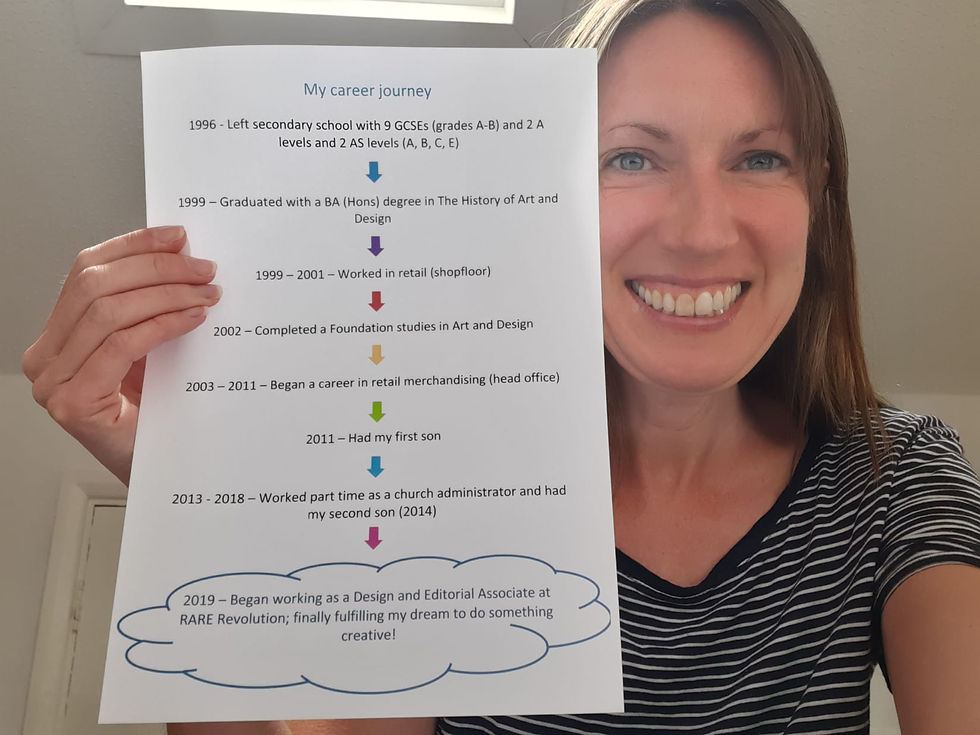 My career journey
1996 - Left secondary school with 9 GCSEs (grades A-B) and 2 A
levels and 2 AS levels (A, B, C, E)
1999 – Graduated with a BA (Hons) degree in The History of Art and
Design
1999 – 2001 – Worked in retail (shopfloor)
2002 – Completed a Foundation studies in Art and Design
2003 – 2011 – Began a career in retail merchandising (head office)
2011 – Had my first son
2013 - 2018 – Worked part time as a church administrator and had
my second son (2014)
2019 – Began working as a Design and Editorial Associate at
RARE Revolution; finally fulfilling my dream to do something
creative!